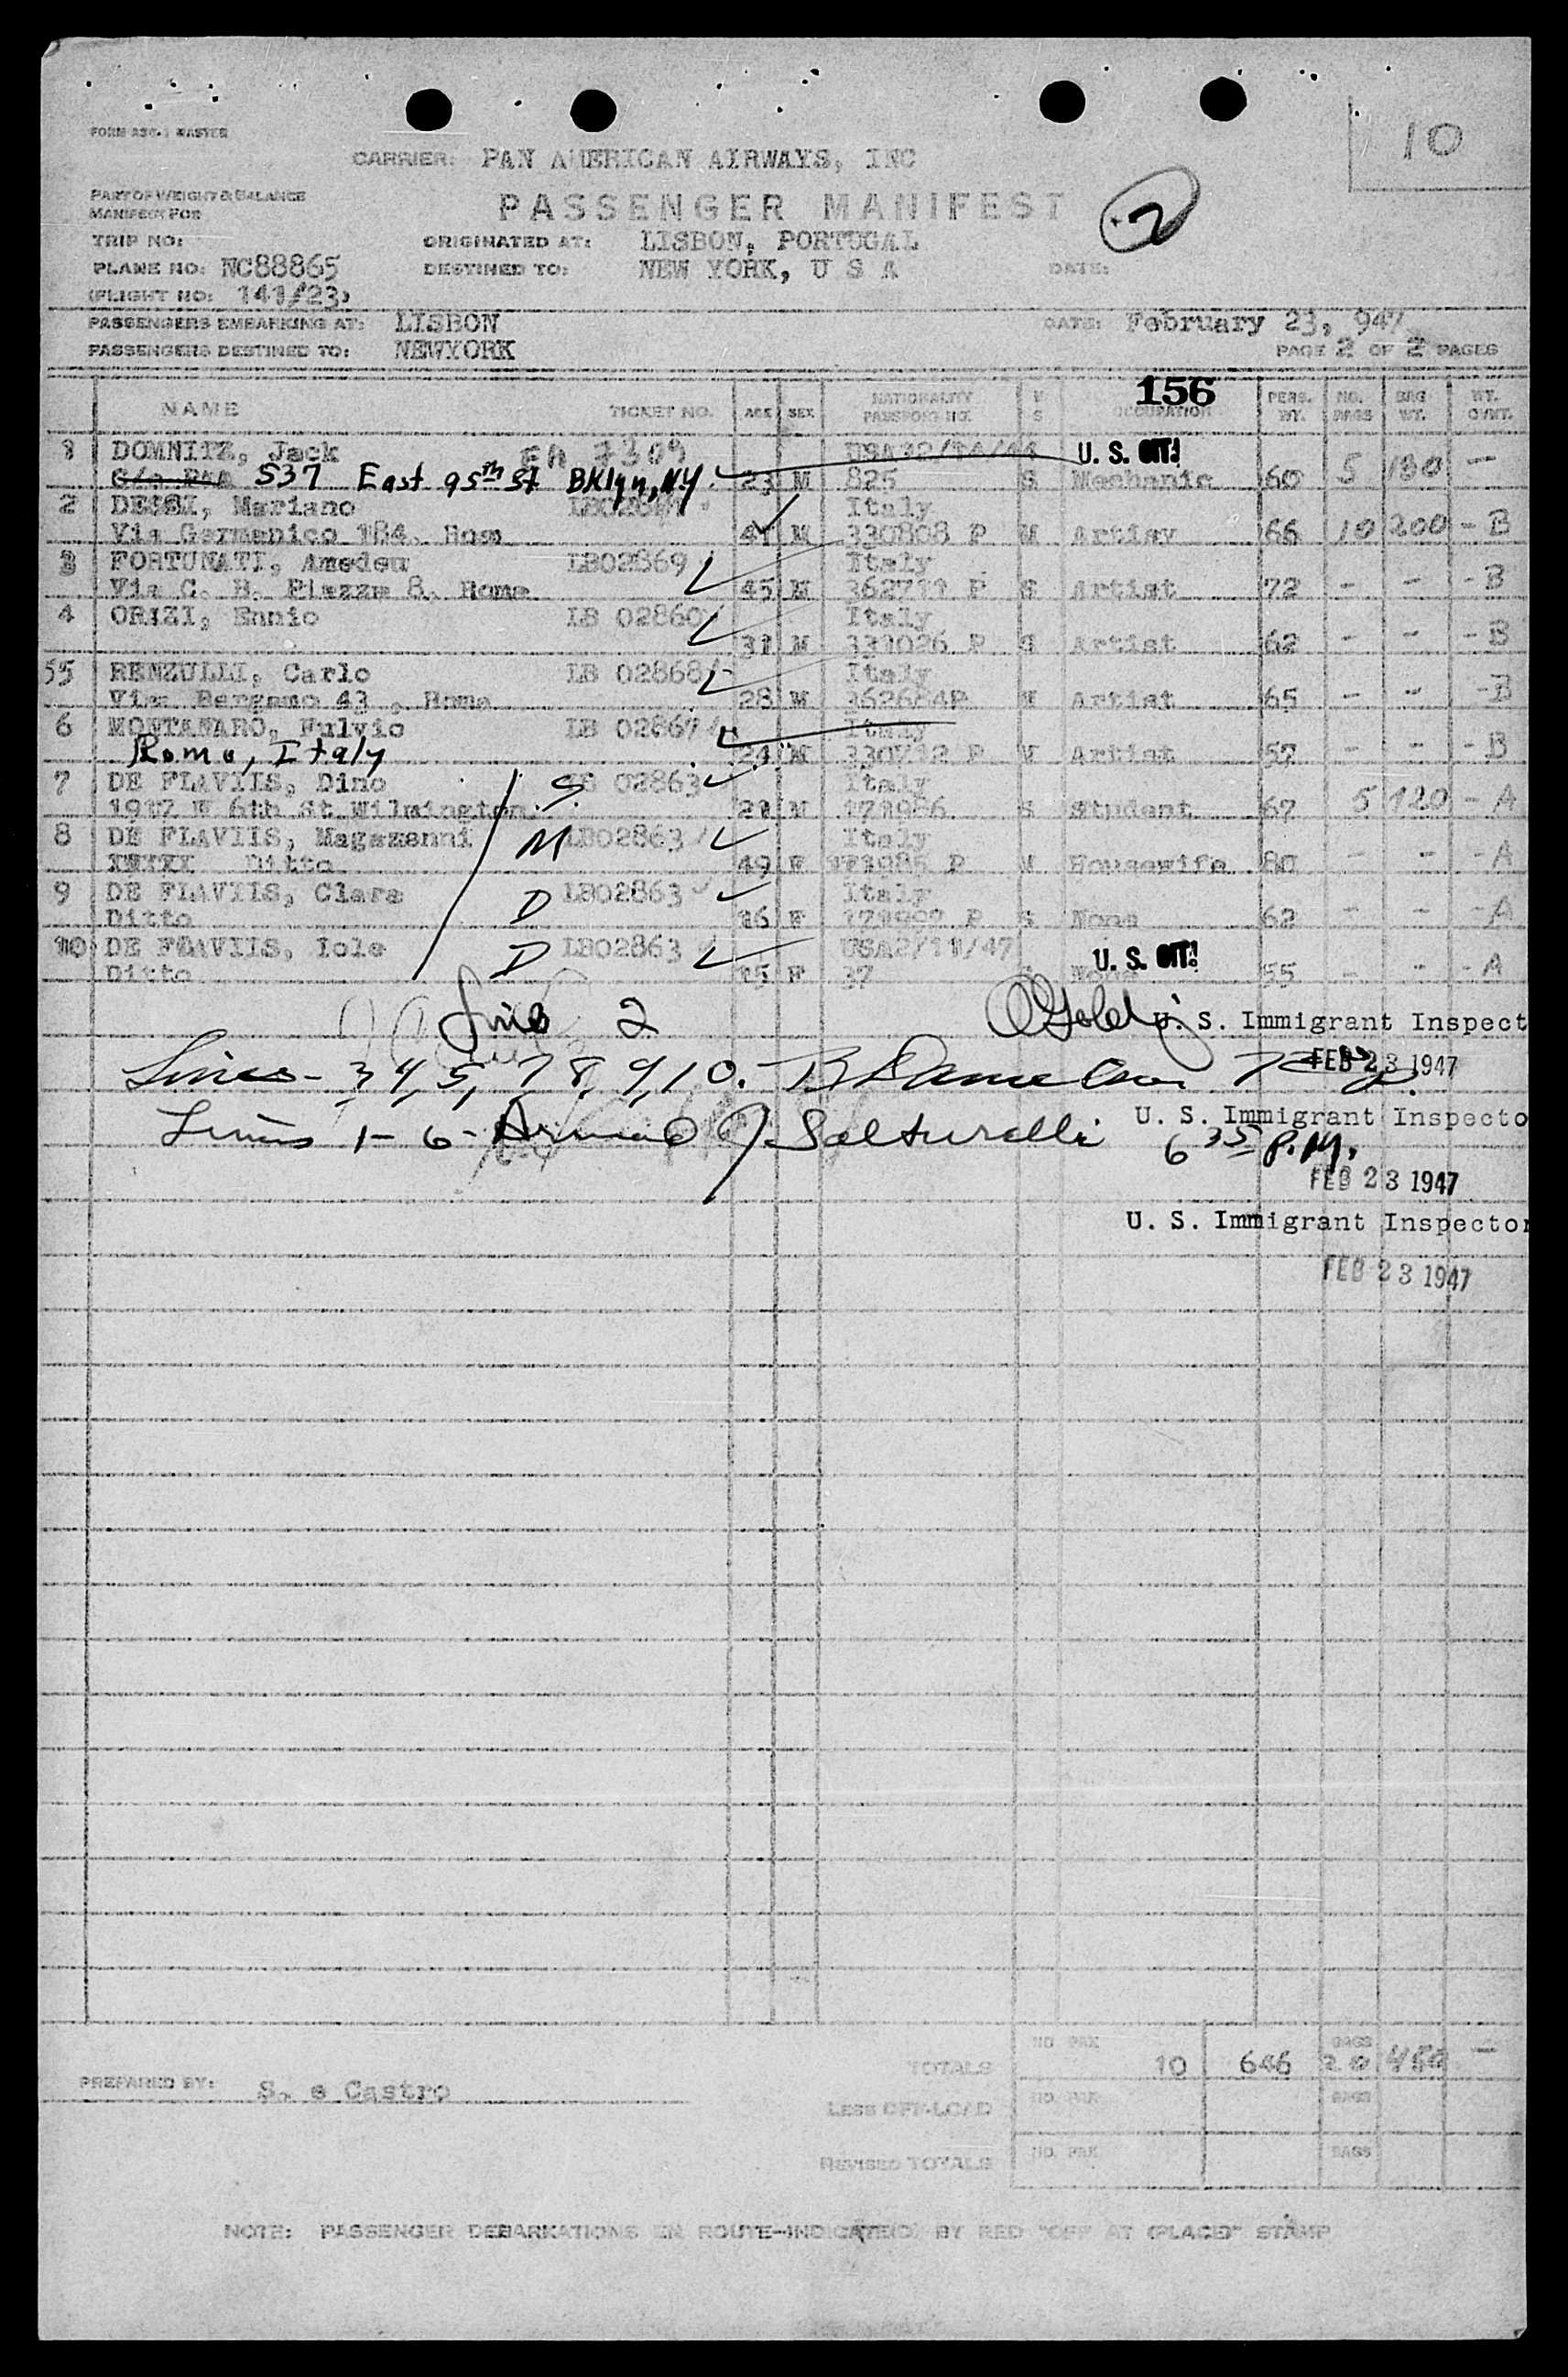 10
CARRIER: PAN AMERICAN AIRWAYS, INC
PART OF WEIGHT & BALANCE
MANIFEST FOR
PASSENGER MANIFEST
2
TRIP NO:
ORIGINATED AT: LISBON, PORTUGAL
PLANE NO: NC88865
DESTINED TO: NEW YORK, U S A
DATE:
FLIGHT NO: 141/23
PASSENGERS EMBARKING AT: LISBON
DATE: February 23, 947
PASSENGERS DESTINED TO: NEWYORK
PAGE 2 OF 2 PAGES
156
NAME TICKET NO. AGE SEX NATIONALITY PASSPORT NO. M S OCCUPATION PERS. WT. NO. BAGS BAG WT. WT. OVWT.
1 DOMNITZ, Jack U. S. CIT!
537 East 95th St Bklyn, NY 23 M 825 S Mechanic 60 5 130 —
2 Mariano Italy
Via Germanico 184. Rom 41 M 330808 P M 66 10 200 - B
3 FORTUNATI, Amedeu LB02869 Italy
Via C. B. Piazza 8, Rome 45 M P S Artist 72 - - - B
4 ORIZI, Ennio LB 02860 Italy
31 M 331026 P S Artist 62 - - - B
55 RENZULLI, Carlo LB 02868 Italy
Via Bergamo 43, Roma 28 M 362684P M Artist 65 - - - B
6 MONTANARO, Fulvio LB 02867 Italy
Rome, Italy 24 M P M Artist 57 - - - B
7 DE FLAVIIS, Dino S. 02863 Italy
1917 W 6th St. Wilmington S Student 67 5 120 - A
8 DE FLAVIIS, Magazenni M LB02863 Italy
Ditto 49 F P M Housewife 80 - - - A
9 DE FLAVIIS, Clara D LB02863 Italy
Ditto 16 F P S None 62 - - - A
10 DE FLAVIIS, Iole D LB02863 USA2/11/47 U. S. CIT!
Ditto 15 F 37 55 - - - A
Line 2 U. S. Immigrant Inspect
Lines - 3, 4, 5, 7, 8, 9, 10. FEB 23 1947
U. S. Immigrant Inspecto
Lines 1 - 6 - J. Salturelli 6 35 P.M.
FEB 23 1947
U. S. Immigrant Inspector
FEB 23 1947
TOTALS NO PAX 10 646 BAGS 20 450 —
PREPARED BY: S. e Castro
LESS OFF-LOAD NO. PAX BAGS
REVISED TOTALS NO. PAX BAGS
NOTE: PASSENGER DEBARKATIONS EN ROUTE—INDICATED BY RED "OFF AT (PLACE)" STAMP